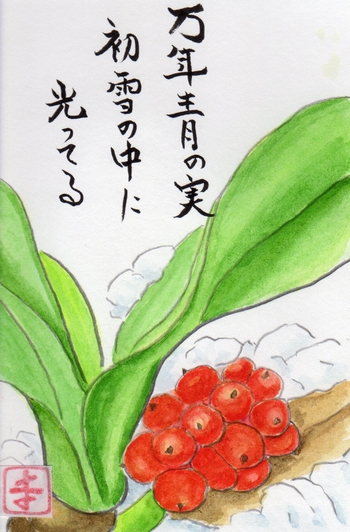 万年青の実
初雪の中に
光ってる